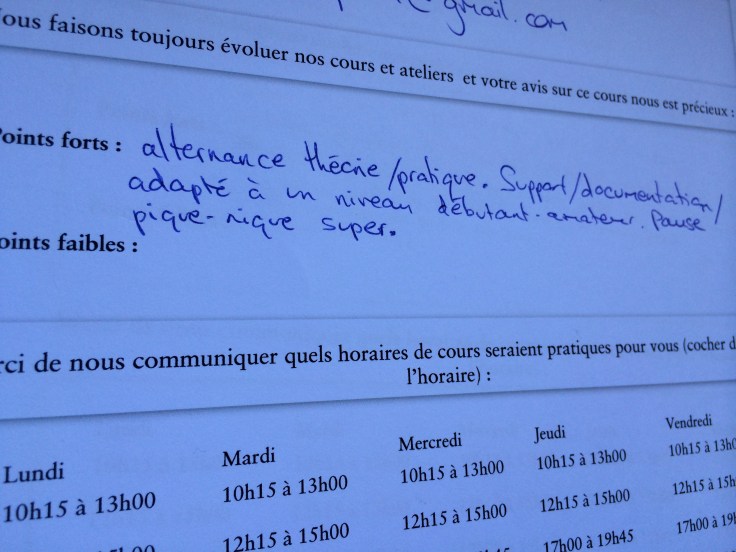 @gmail.com
ous faisons toujours évoluer nos cours et ateliers et votre avis sur ce cours nous est précieux :
oints forts : alternance théorie/pratique. Support/documentation/
adapté à un niveau débutant-amateur. Pause
pique-nique super.
oints faibles :
rci de nous communiquer quels horaires de cours seraient pratiques pour vous (cocher d
l'horaire) :
Lundi Mardi Mercredi Jeudi Vendredi
10h15 à 13h00 10h15 à 13h00 10h15 à 13h00 10h15 à 13h00 10h15 à 13h0
12h15 à 15h00 12h15 à 15h00 12h15 à 15h00 12h15 à 15h
17h00 à 19h45 17h00 à 19h